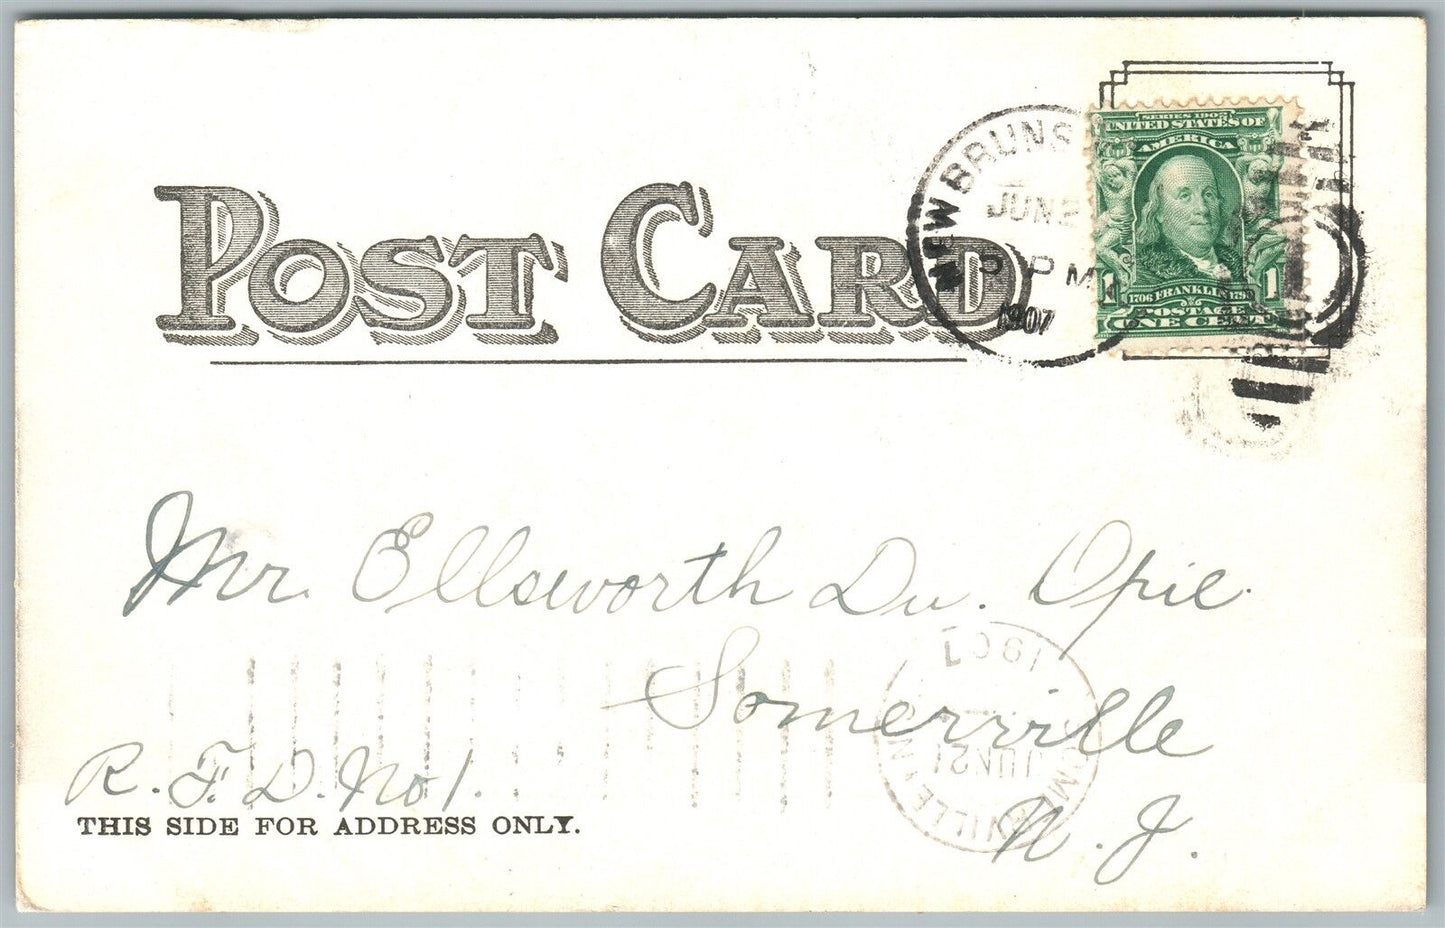 POST CARD
NEW BRUNS
JUNE
PM
1907
SERIES 1902
UNITED STATES OF
AMERICA
1706 FRANKLIN 1790
1 POSTAGE 1
ONE CENT
Mr. Ellsworth Du. Opie.
Somerville
N. J.
R. F. D. No 1.
SOMERVILLE N
JUN 21
1907
THIS SIDE FOR ADDRESS ONLY.